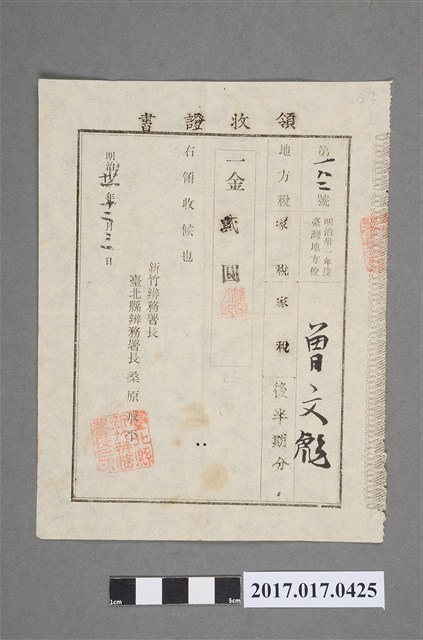 領收證書
第一八二號
明治卅一年度
臺灣地方稅
曾文彪
地方稅家稅家稅後半期分
一金貳圓
右領收候也
明治年十二月二日
新竹辨務署長
臺北縣辨務署長桑原
43
1cm
5cm
2017.017.0425